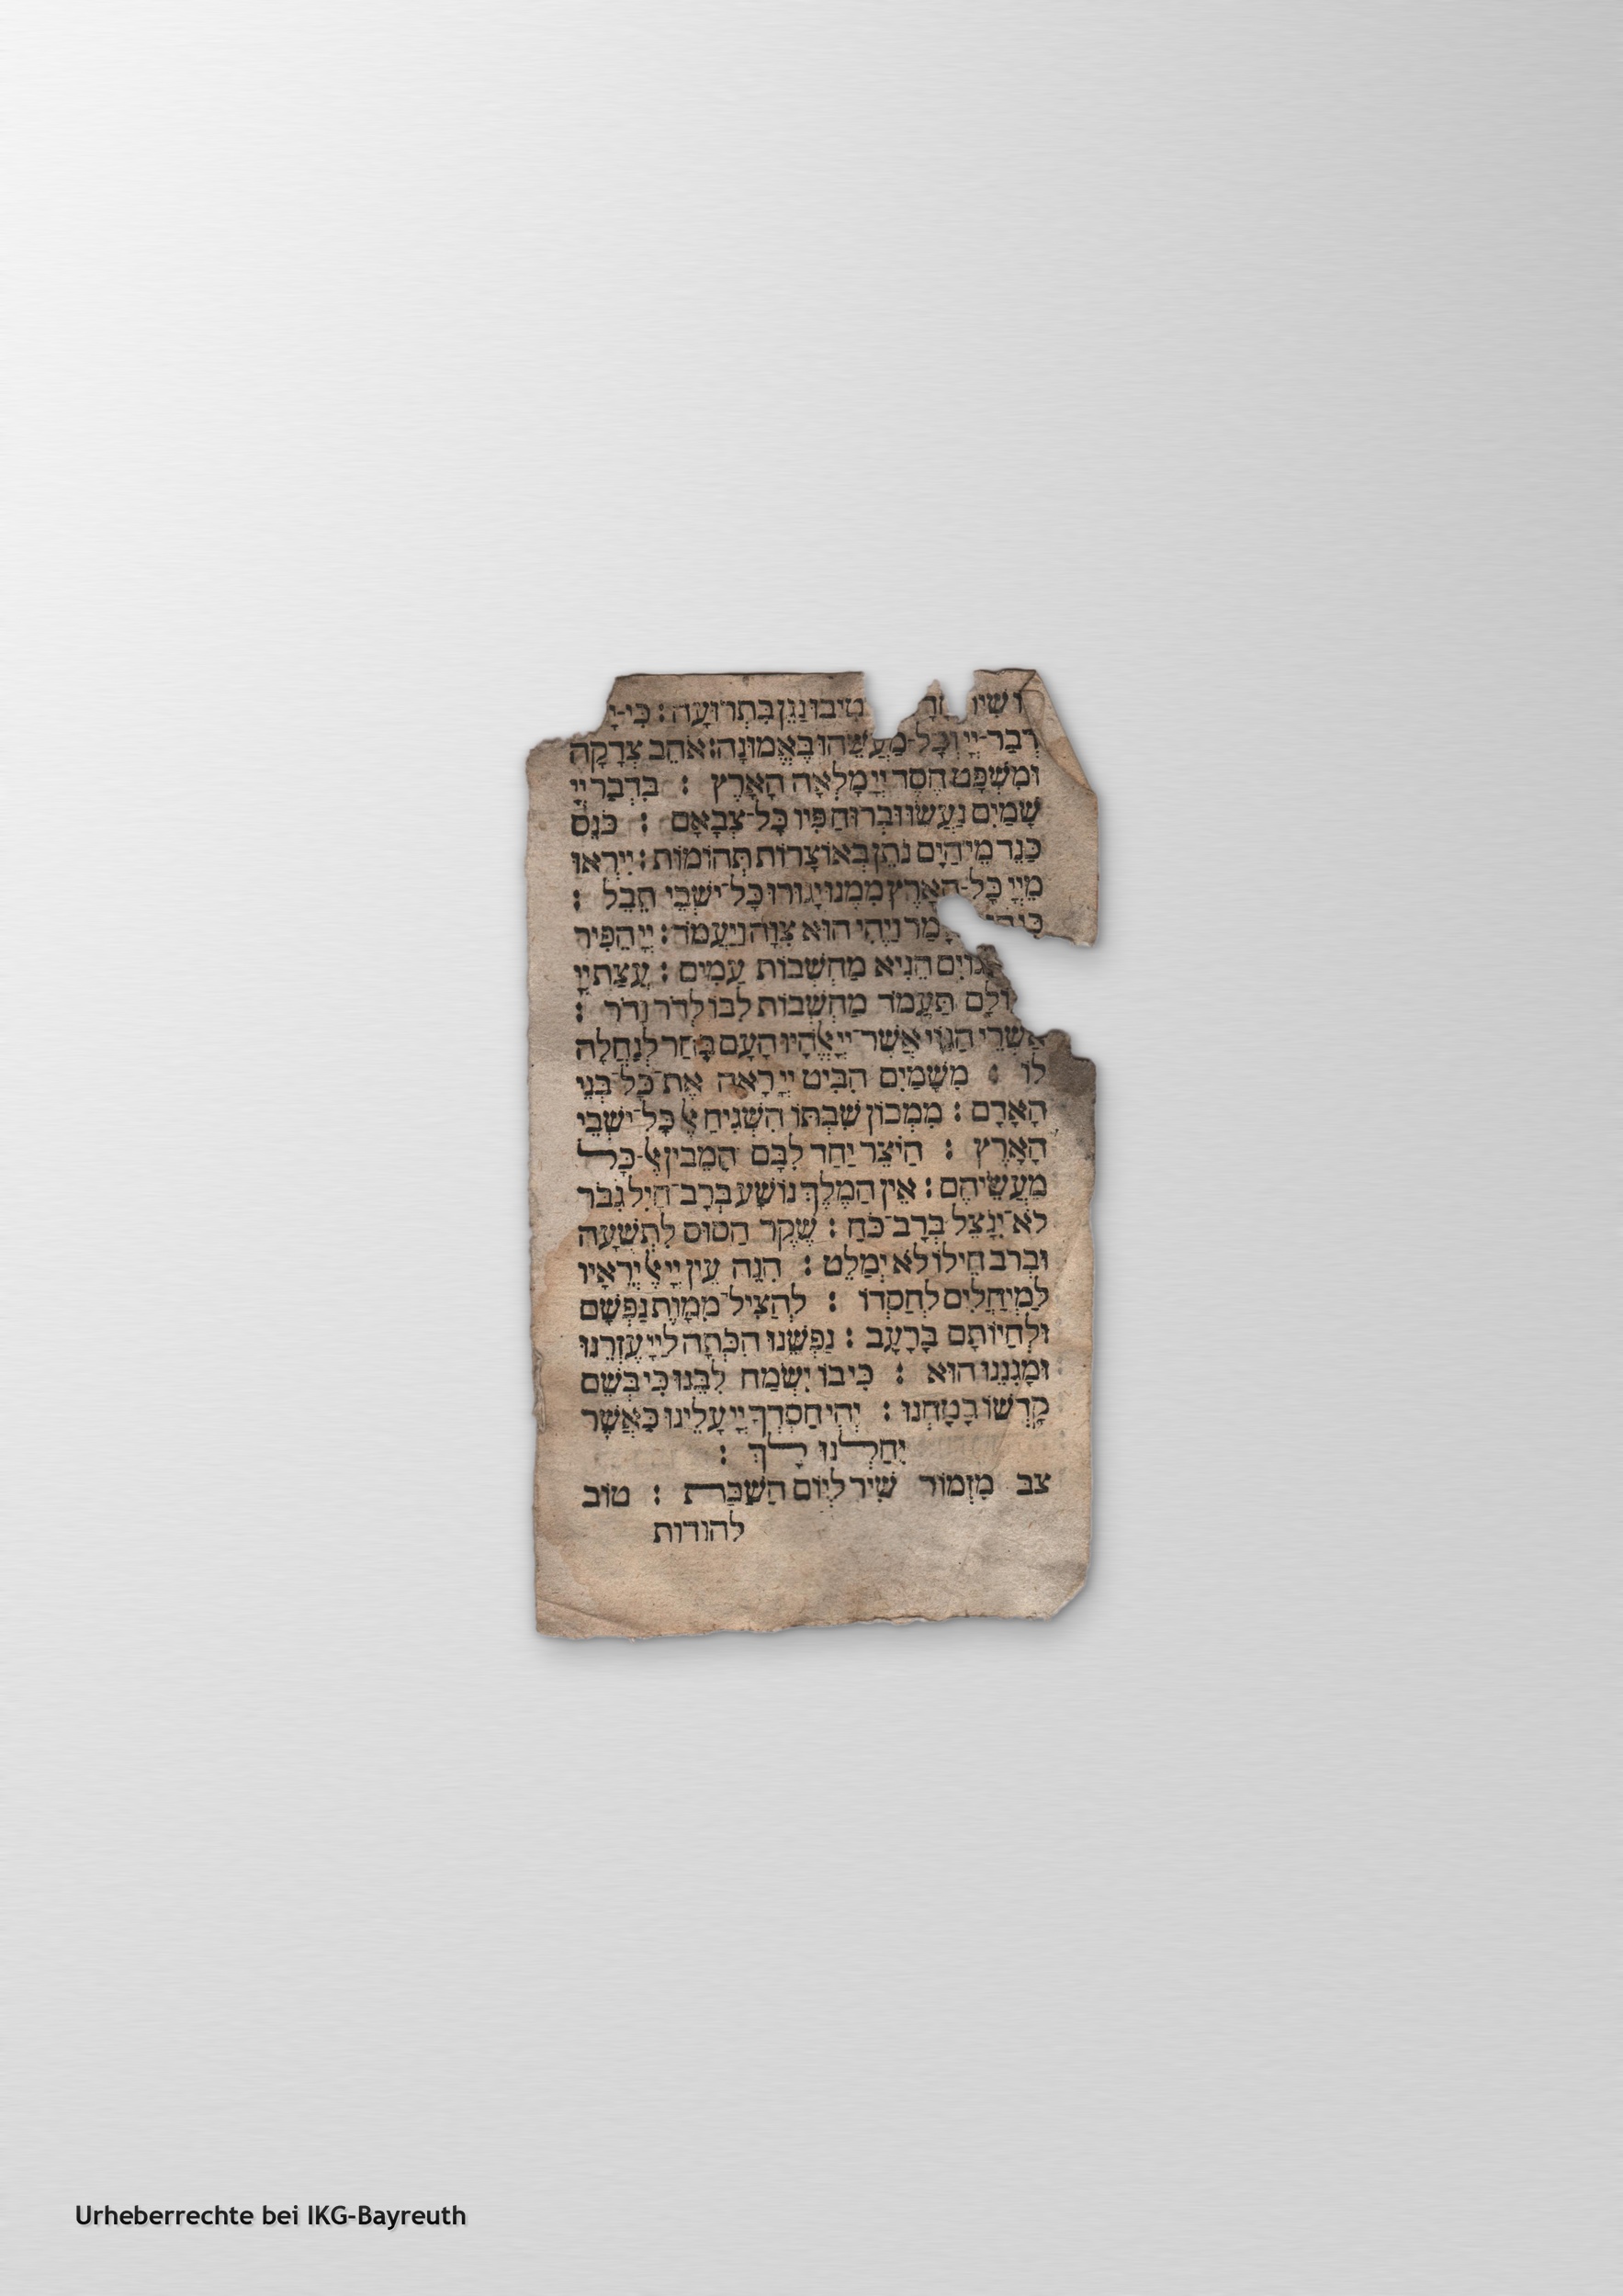 טיבו נַגֵן בִּתְרוּעָה : כִּי-יָ
דְבַר-יְיָ וְכָל-מַעֲשֵׂהוּ בֶּאֱמוּנָה : אֹהֵב צְדָקָה
וּמִשְׁפָּט חֶסֶד יְיָ מָלְאָה הָאָרֶץ : בִּדְבַר יְיָ
שָׁמַיִם נַעֲשׂוּ וּבְרוּחַ פִּיו כָּל-צְבָאָם : כֹּנֵס
כַּנֵד מֵי הַיָּם נֹתֵן בְּאוֹצָרוֹת תְּהוֹמוֹת : יִירְאוּ
מֵיְיָ כָּל-הָאָרֶץ מִמֶנוּ יָגוּרוּ כָּל-יֹשְׁבֵי תֵבֵל :
וַיֶּהִי הוּא צִוָּה וַיַּעֲמֹד : יְיָ הֵפִיר
גּוֹיִם הֵנִיא מַחְשְׁבוֹת עַמִּים : עֲצַת יְיָ
תַּעֲמֹד מַחְשְׁבוֹת לִבּוֹ לְדֹר וָדֹר :
אַשְׁרֵי הַגּוֹי אֲשֶׁר-יְיָ אֱלֹהָיו הָעָם בָּחַר לְנַחֲלָה
לוֹ : מִשָּׁמַיִם הִבִּיט יְיָ רָאָה אֶת-כָּל-בְּנֵי
הָאָדָם : מִמְּכוֹן שִׁבְתּוֹ הִשְׁגִּיחַ אֶל כָּל-יֹשְׁבֵי
הָאָרֶץ : הַיֹּצֵר יַחַד לִבָּם הַמֵּבִין אֶל-כָּל
מַעֲשֵׂיהֶם : אֵין הַמֶּלֶךְ נוֹשָׁע בְּרָב-חַיִל גִּבֹּר
לֹא-יִנָּצֵל בְּרָב-כֹּחַ : שֶׁקֶר הַסּוּס לִתְשֻׁעָה
וּבְרֹב חֵילוֹ לֹא יְמַלֵּט : הִנֵּה עֵין יְיָ אֶל יְרֵאָיו
לַמְיַחֲלִים לְחַסְדּוֹ : לְהַצִּיל מִמָּוֶת נַפְשָׁם
וּלְחַיּוֹתָם בָּרָעָב : נַפְשֵׁנוּ חִכְּתָה לַייָ עֶזְרֵנוּ
וּמָגִנֵּנוּ הוּא : כִּי בוֹ יִשְׂמַח לִבֵּנוּ כִּי בְשֵׁם
קָדְשׁוֹ בָטָחְנוּ : יְהִי חַסְדְּךָ יְיָ עָלֵינוּ כַּאֲשֶׁר
יִחַלְנוּ לָךְ :
צב מִזְמוֹר שִׁיר לְיוֹם הַשַּׁבָּת : טוֹב
להודות
Urheberrechte bei IKG-Bayreuth